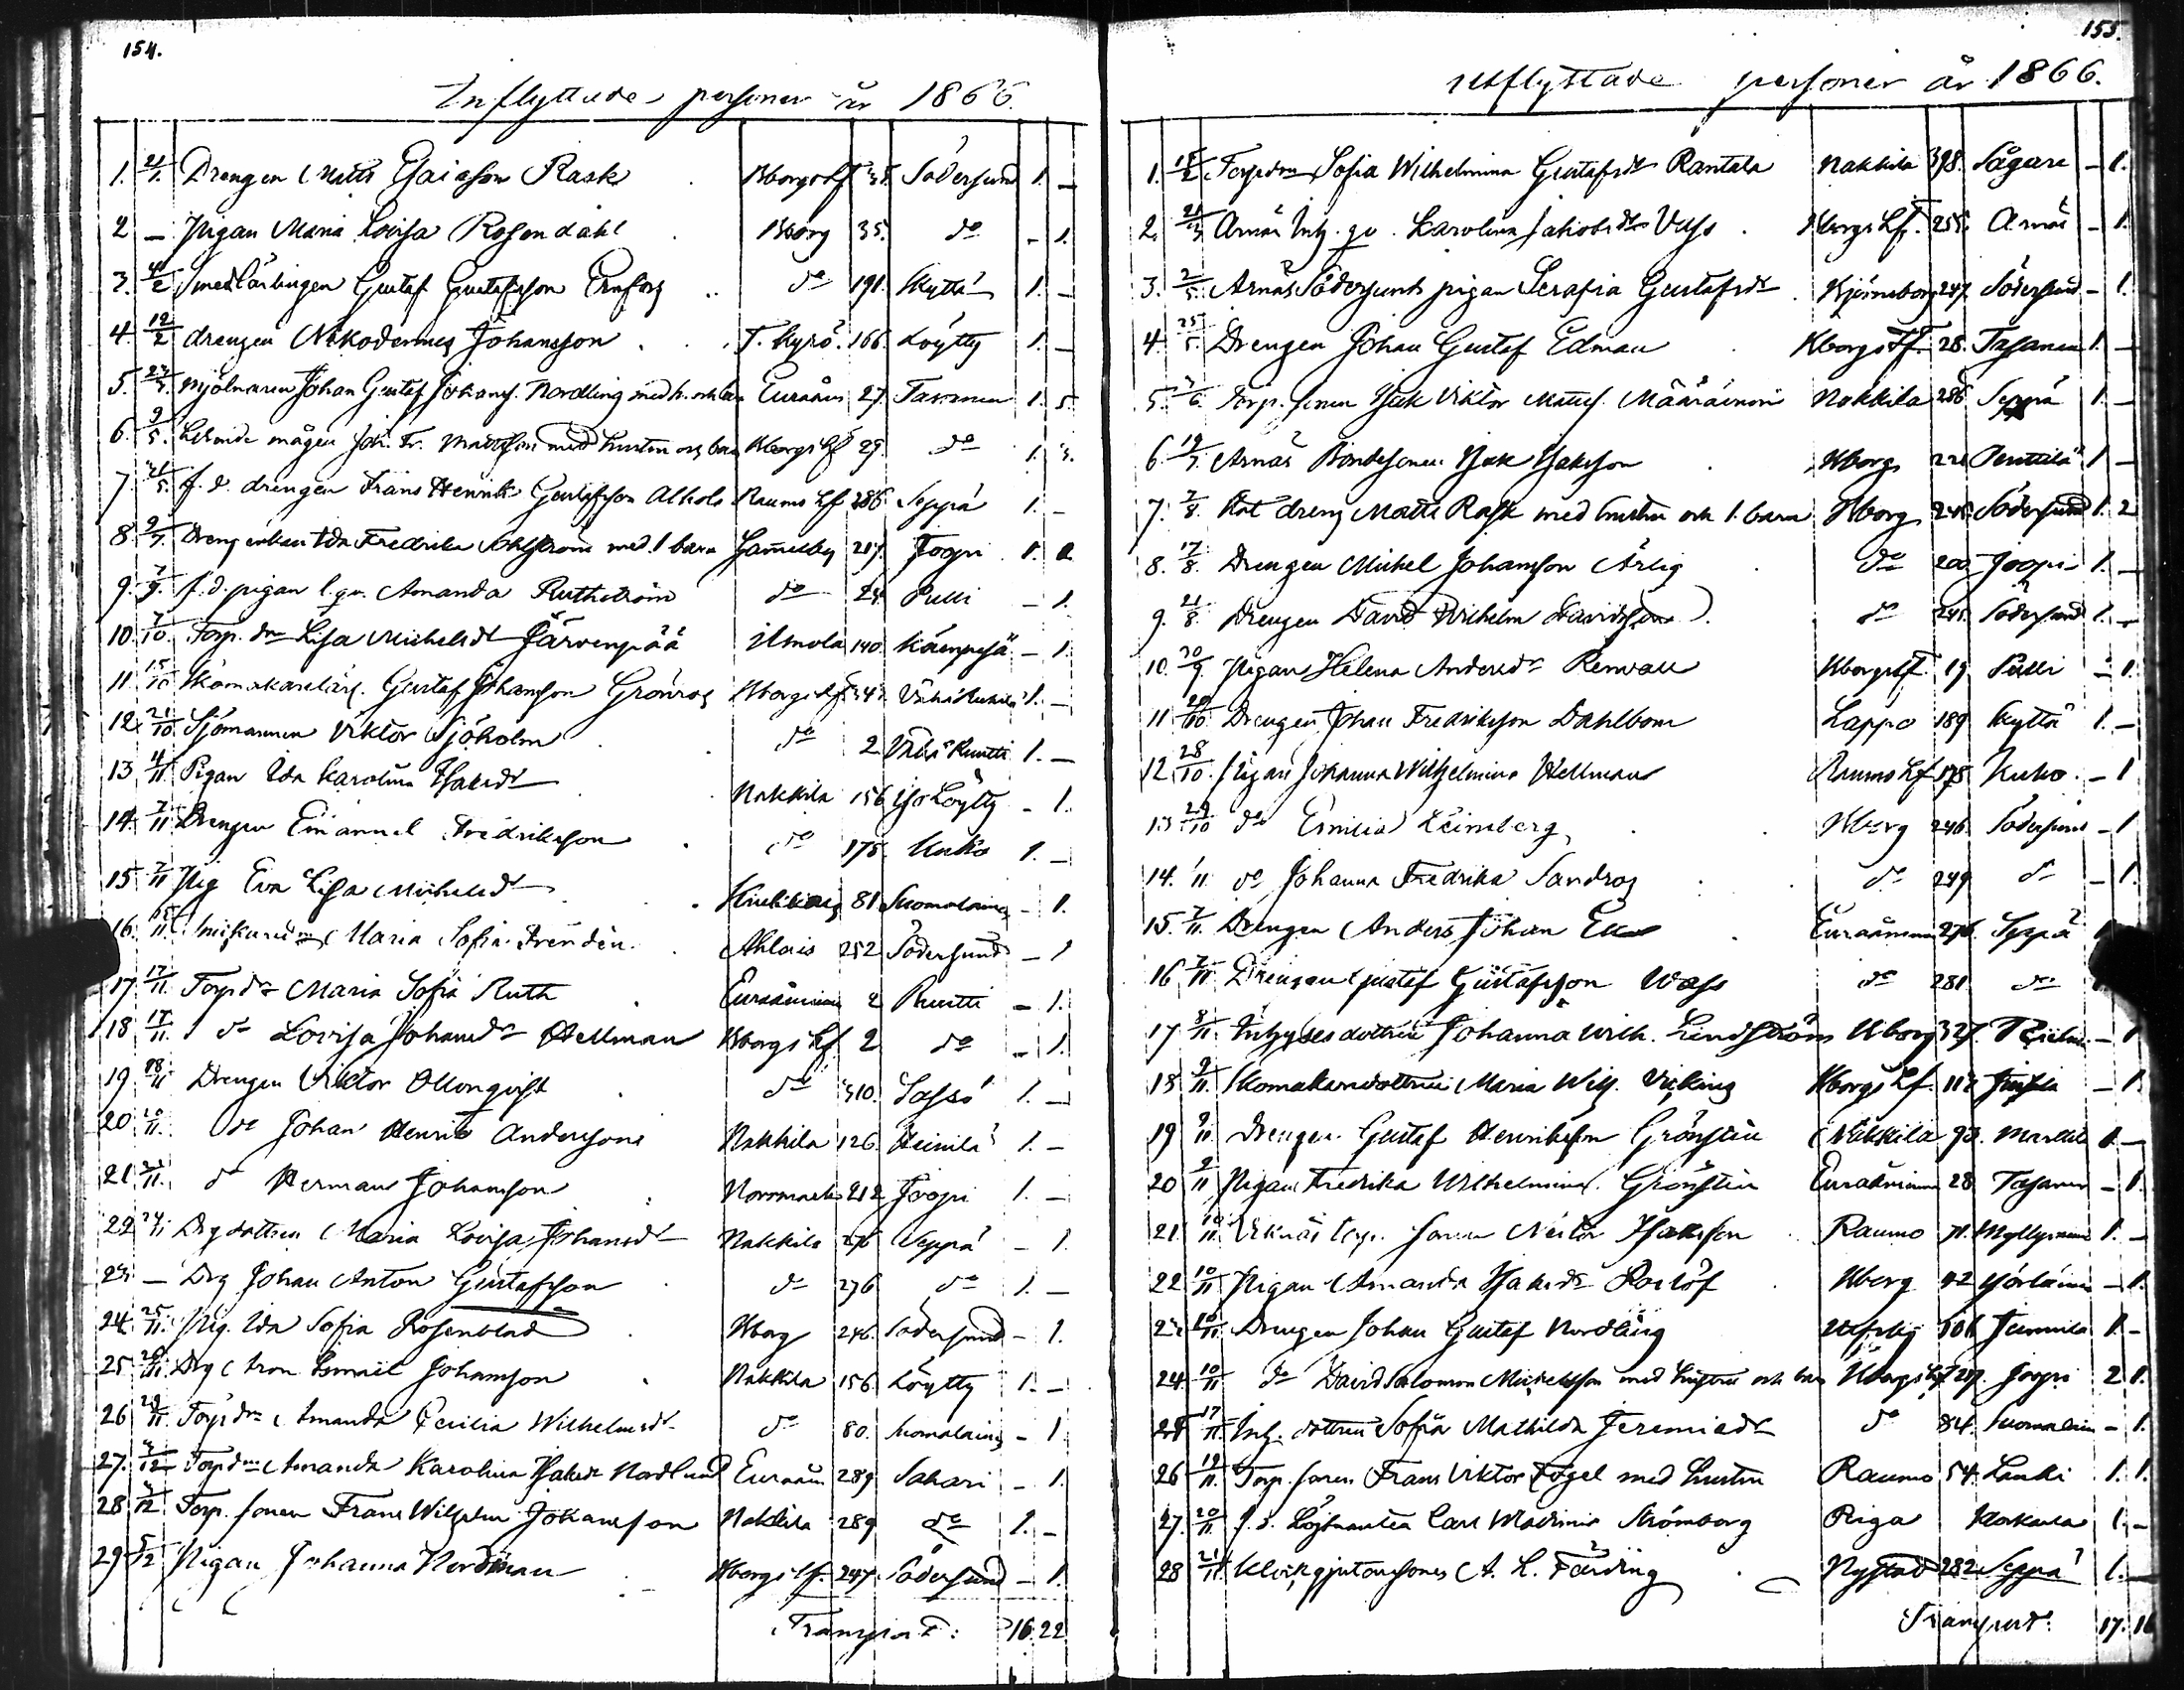 154.
Inflyttade personer år 1866.
1. 21/1. Drengen Matts Esaiasson Rask Bborgs Lf Södersund 1. –
2 – Pigan Maria Lovisa Rosendahl Bborg 35. do – 1.
3. Smedlärlingen Gustaf Gustafsson Ernfors do 191. Kyttä 1. –
4. 12/2 drengen Nikodemus Johansson T. Kyrö. 166. Löytty 1. –
5. Mjölnaren Johan Gustaf Johanss. Nordling med h. och barn Euraåm 27. Tasanen 1. 5.
6. 9/5. mågen Joh. Fr. Mattsson med hustru och barn Bborgs Lf 29. do 1. 3.
7. 21/5. f. d. drengen Frans Henrik Gustafsson Alhola Raumo Lf 286 Seppä 1. –
8 9/7. Drengenkan Ida Fredrika Sohlström med 1 barn 217. Joopi 1.
9. 7/9. f. d. pigan l. qv. Amanda Ruthström do 24. Pulli – 1.
10. 7/10. Torp. dr Lisa Michelsdr Järvenpää Ilmola 140. Kämppä – 1.
11 15/10 Skomakarelärl. Gustaf Johansson Grönros Bborgs Lf 343. 1. –
12. 21/10. Sjömannen Viktor Sjöholm do 2 Vähä Ruutti 1. –
13 4/11. Pigan Ida Karolina Isaksdr Nakkila 156 Iso Löytty – 1.
14. 7/11 Drengen Emanuel Fredriksson do 175. Kuko 1. –
15 7/11 Pig Eva Lisa Michelsdr Kiukkais 81 Suomalaine – 1.
16. 15/11. Maria Sofia Trenden Ahlais 252 Södersund – 1
17 17/11. Torpdr Maria Sofia Ruth Euraåminne 2 Ruutti – 1.
18 17/11. do Lovisa Johansdr Hellman Bborgs Lf 2 do – 1.
19 18/11 Drengen Viktor Ollonqvist do 310. Sassi 1. –
20 20/11. do Johan Henrik Andersson Nakkila 126. Heinilä 1. –
21 21/11. do Herman Johansson Norrmark 212 Joopi 1. –
22 24/11 Drgdottren Maria Lovisa Johansdr Nakkila 276 Seppä – 1.
23. – Drg Johan Anton Gustafsson do 276 do 1. –
24. 25/11. Pig. Ida Sofia Rosenblad Bborg 246. Södersund – 1.
25 26/11. Drg Aron Ismael Johansson Nakkila 156 Löytty 1. –
26 29/11 Torpdr Amanda Cecilia Wilhelmsdr do 80. Suomalaine – 1.
27. 3/12 Torpdr Amanda Karolina Isaksdr Nordlund Euraåm 289 Sakari – 1.
28 3/12 Torp. sonen Frans Wilhelm Johansson Nakkila 289 do 1. –
29 5/12 Pigan Johanna Nordman Bborgs Lf. 247. Södersund – 1.
Transport: 16. 22
155.
Utflyttade personer år 1866.
1. Torpdr Sofia Wilhelmina Gustafsdr Rantala Nakkila 398. Sågare – 1.
2. 21/3 Arnäs Inh. qv. Karolina Jakobsdr Vass Bborgs Lf. 255. Arnäs – 1.
3. 2/5. Arnäs Södersunds pigan Serafia Gustafsdr Björneborg 247. Södersund – 1.
4. 25/5. Drengen Johan Gustaf Edman Bborgs Lf. 28. Tasanen 1. –
5. Torp. sonen Isak Viktor Mattss. Määräinen Nakkila 286 Seppä 1. –
6. 19/7. Arnäs Bondesonen Isak Isaksson Bborg Penttilä 1 –
7. 7/8. Rot dreng Matts Rask med hustru och 1. barn Bborg 245 Södersund 1. 2
8. 17/8. Drengen Michel Johansson Ärlig do 200 Joopi 1. –
9. 21/8. Drengen David Wilhelm Davidsson do 245. Södersund 1. –
10. 30/9. Pigan Helena Andersdr Renvall Bborgs Lf. 19 Pulli – 1.
11 20/10. Drengen Johan Fredriksson Dahlbom Lappo 189 Kyttä 1. –
12. 28/10. Pigan Johanna Wilhelmina Hellman Raumo Lf 175. Kuko. – 1
13 29/10 do Emilia Leimberg Bborg 246 Södersund – 1
14. 1/11. do Johanna Fredrika Sandros do 249 do – 1.
15. 7/11. Drengen Anders Johan Ek Euraåminne 276. Seppä
16 7/11 Drengen Gustaf Gustafsson Wass do 281. do
17 8/11. Inhysesdottren Johanna Wilh. Lindström Bborg 327. – 1
18 9/11. Skomakaredottren Maria Wilh. Viking Bborgs Lf. – 1.
19 9/11 Drengen Gustaf Henriksson Grönsten Nakkila 93. 1. –
20 9/11 Pigan Fredrika Wilhelmina Grönsten Euraåminne 28 Tasanen – 1.
21. 10/11 torp. sonen Nestor Isaksson Raumo 71. Myllymaa 1. –
22 10/11 Pigan Amanda Isaksdr Roslöf Bborg 42 – 1.
23. 10/11. Drengen Johan Gustaf Nordling 106 Junnila 1. –
24. 10/11 do David Salomon Michelsson med hustru och barn Bborgs Lf 217. Joopi 2 1.
25 17/11. Inh. dottren Sofia Mathilda Jeremiedr do 84. Suomalain – 1.
26 19/11. Torp. sonen Frans Viktor Fogel med hustru Raumo 54. Lauki 1. 1.
27. 20/11. f. d. Löjtnanten Carl Wladimir Strömborg Riga 1. –
28 21/11 Klockgjutaresonen A. L. Färding Nystad 282 Seppä 1. –
Transport: 17. 16